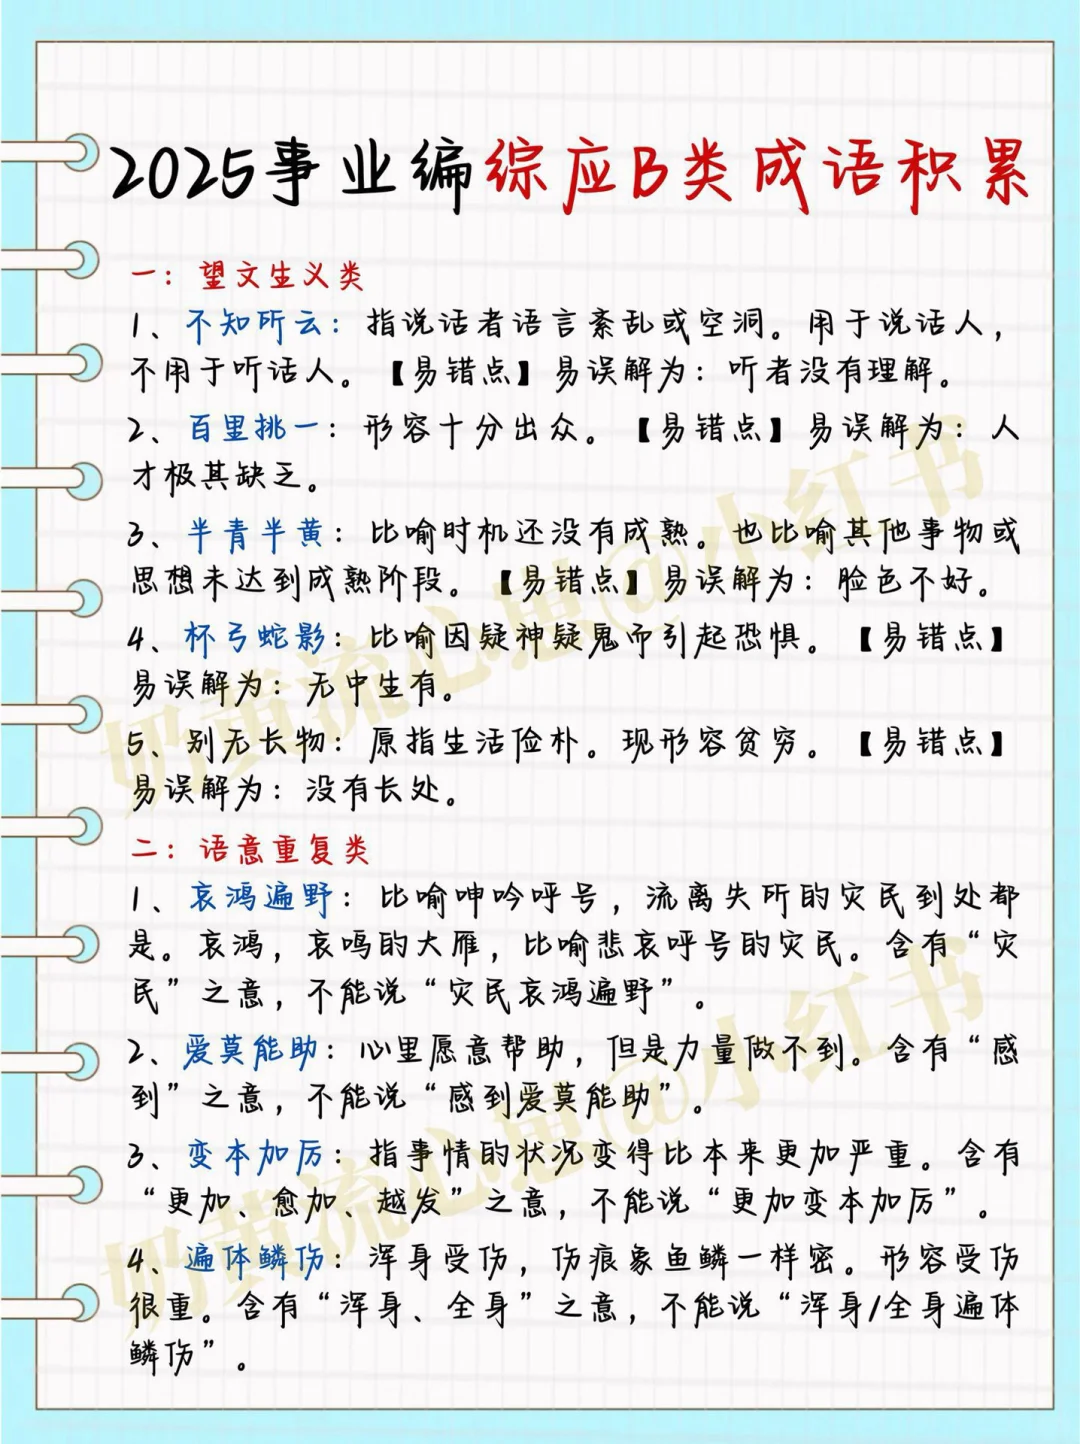 2025事业编综应B类成语积累
一：望文生义类
1、不知所云：指说话者语言紊乱或空洞。用于说话人，
不用于听话人。【易错点】易误解为：听者没有理解。
2、百里挑一：形容十分出众。【易错点】易误解为：人
才极其缺乏。
3、半青半黄：比喻时机还没有成熟。也比喻其他事物或
思想未达到成熟阶段。【易错点】易误解为：脸色不好。
4、杯弓蛇影：比喻因疑神疑鬼而引起恐惧。【易错点】
易误解为：无中生有。
5、别无长物：原指生活俭朴。现形容贫穷。【易错点】
易误解为：没有长处。
二：语意重复类
1、哀鸿遍野：比喻呻吟呼号，流离失所的灾民到处都
是。哀鸿，哀鸣的大雁，比喻悲哀呼号的灾民。含有“灾
民”之意，不能说“灾民哀鸿遍野”。
2、爱莫能助：心里愿意帮助，但是力量做不到。含有“感
到”之意，不能说“感到爱莫能助”。
3、变本加厉：指事情的状况变得比本来更加严重。含有
“更加、愈加、越发”之意，不能说“更加变本加厉”。
4、遍体鳞伤：浑身受伤，伤痕象鱼鳞一样密。形容受伤
很重。含有“浑身、全身”之意，不能说“浑身/全身遍体
鳞伤”。
奶黄流心思@小红书
奶黄流心思@小红书